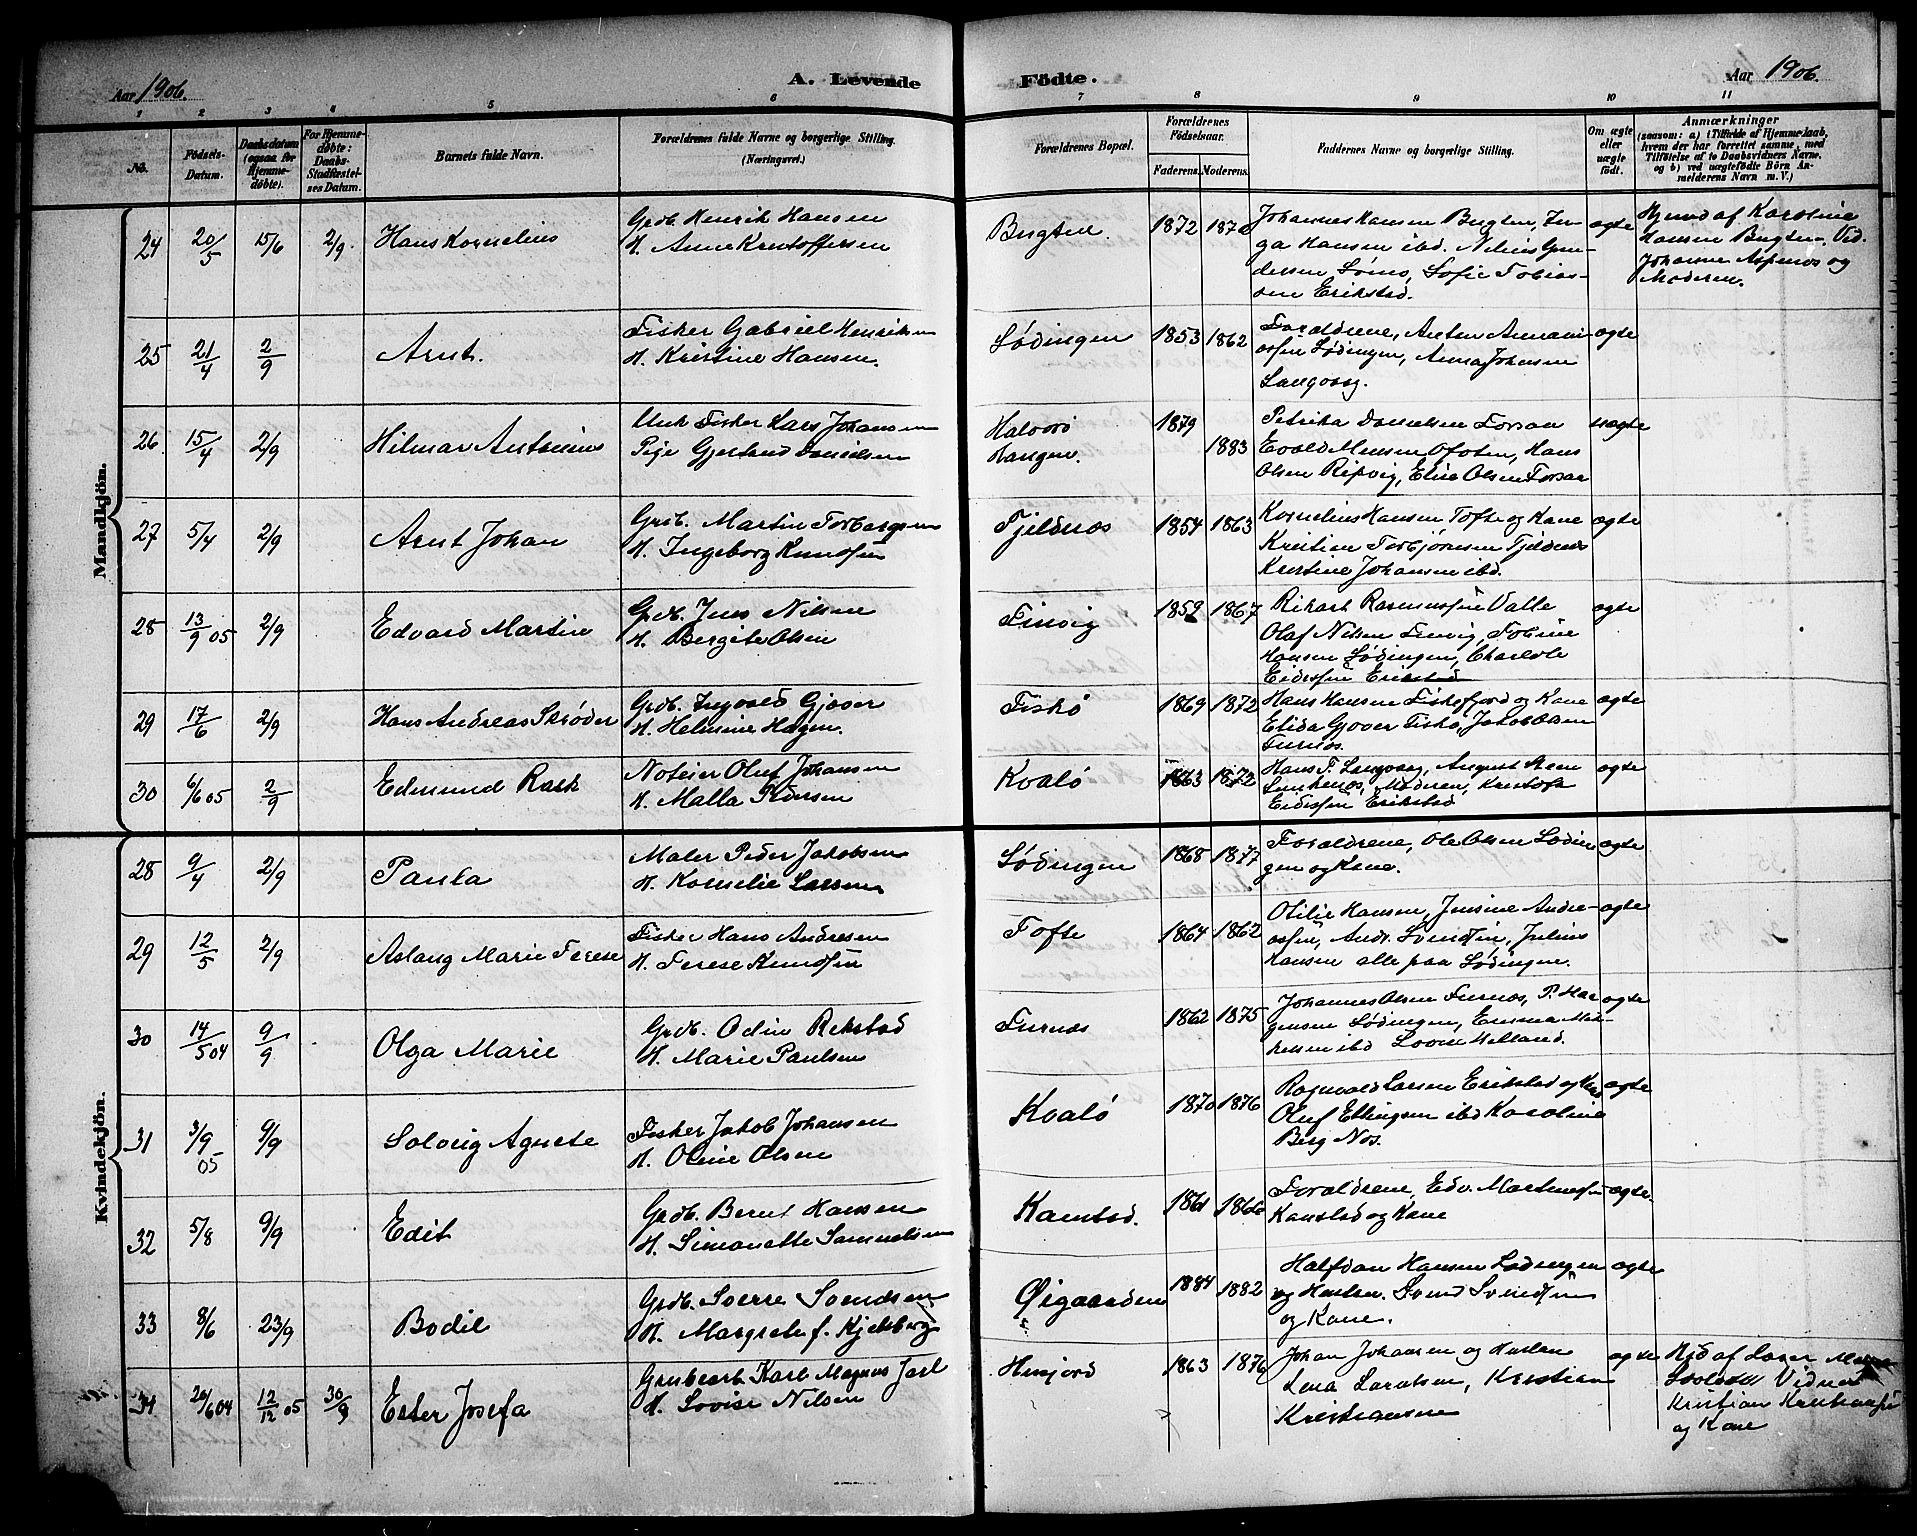 Aar 1906.
A. Levende Födte.
Aar 1906.
1 2 3 4 5 6 7 8 9 10 11
No.
Födsels-Datum.
Daabsdatum (ogsaa for Hjemme-döbte).
For Hjemme-döbte: Daabs-Stadfæstel-ses Datum.
Barnets fulde Navn.
Forældrenes fulde Navne og borgerlige Stilling. (Næringsvei.)
Forældrenes Bopæl.
Forældrenes Födselsaar.
Faderens. Moderens.
Faddernes Navne og borgerlige Stilling.
Om ægte eller uægte födt.
Anmærkninger
(saasom: a) i Tilfælde af Hjemmedaab,
hvem der har forrettet samme, med
Tilföielse af to Daabsvidners Navne,
og b) ved uægtefödte Börn An-
melderens Navn m. V.)
Mandkjön.
24 20/5 15/6 2/9. Hans Kornelius
Grdb. Henrik Hansen
H. Anne Kristoffersen
Bugten. 1872
Johannes Hansen Bugten, In-
ga Hansen ibd. Nelius Gun-
dersen Sømo, Sofie Tobias-
sen Erikstad.
ægte
Hjemd af Karoline
Hansen Bugten. Vid.
Johanne Aspenes og
Moderen.
25 21/4 2/9 Arnt.
Fisker Gabriel Henriksen
H. Kristine Hansen.
Lødingen 1853 1862
Forældrene, Anton
Lødingen, Anna Johansen
Langvaag.
ægte
26 15/4 2/9 Hilmar Antonius
Unk Fisker Lars Johansen
Pige Gjertrud Danielsen
Halvorø
Hangen. 1879 1883
Petrika Danielsen Forsaa
Evald Monsen Ofoten, Hans
Olsen Ripvig, Elise Olsen Forsaa
uægte
27 5/4 2/9 Arnt Johan
Grdb. Martin Torbergsen
H. Ingeborg Knudsen
Fjeldnæs 1854 1863
Kornelius Hansen Tofte og Kone
Kristian Torbjørnsen Fjeldnes
Kristine Johansen ibd.
ægte
28 13/9 05 2/9 Edvard Martin
Grdb. Jens Nilsen
H. Bergite Olsen
Finvig 1859 1867
Rikart Rasmussen Valle
Olaf Nilsen Finvig, Tobine
Hansen Lødingen, Charlote
Eidissen Erikstad
ægte
29 17/6 2/9 Hans Andreas Skrøder
Grdb. Ingvald Gjøver
H. Helmine Hagen.
Fiskø 1869 1872
Hans Hansen Fiskefjord og Kone
Elida Gjøver Fiskø, Jakob Olsen
Furnes.
ægte
30 6/6 05 2/9 Edmund Rask
Noteier Oluf Johansen
H. Malla Pedersen
Kvalø 1863 1872
Hans P. Langvaag, August Steen
Moderen, Kristofa
Eidissen Erikstad
ægte
Kvindekjön.
28 9/4 2/9 Paula
Maler Peder Jakobsen
H. Kornelie Larsen
Lødingen 1868 1877
Forældrene, Ole Olsen Lødin
gen og Kone.
ægte
29 12/5 2/9 Aslaug Marie Terese
Fisker Hans Andresen
H. Terese Knudsen
Tofte 1864 1862
Otilie Hansen, Jensine Andre-
assen, Andr. Svendsen, Julius
Hansen alle paa Lødingen.
ægte
30 14/5 04 9/9 Olga Marie
Grdb. Odin Rekstad
H. Marie Paulsen
Furnæs 1862 1875
Johannes Olsen Furnæs, P. Haa
gensen Lødingen, Emma Mik-
kelsen ibd Lovise Helland.
ægte
31 3/9 05 9/9 Solveig Agnete
Fisker Jakob Johansen
H. Oline Olsen
Kvalø 1870 1876
Ragnvald Larsen Erikstad og Kone
Oluf Ellingsen ibd Karoline
Berg Nes.
ægte
32 5/8 9/9 Edit
Grdb. Bernt Hansen
H. Simonette Samuelsen
Kanstad. 1861 1866
Forældrene, Edv. Martinussen
Kanstad og Kone
ægte.
33 8/6 23/9 Bodil
Grdb. Sverre Svendsen
H. Margrete f. Kjelsberg
Øigaarden 1884 1882
Halfdan Hansen Lødingen
og Hustru. Svend Svendsen
og Kone.
ægte
34 20/6 04 12/12 05 30/9 Ester Josefa
Grubearb Karl Magnus Jarl
H. Lovise Nilsen
Husjord 1863 1876
Johan Johansen og Hustru
Lena Larsen, Kristian
Kristiansen
ægte
Hjd af Lærer
Vidner
Kristian Kristiansen
og Kone